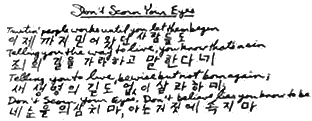 Don't Scorn Your Eyes
Trustin' people works until you let them begin
이제 까지 믿어 왔던 사람들도
Telling you the way to live, you know that's a sin
죄의 길을 가라하고 말 한다네
Telling you to live, be wise but not born again;
새 생명의 길도 없이 살라하네;
Don't Scorn Your Eyes, Don't believe lies you know to be
네 눈을 의심치 마, 아는 거짓에 속지 마